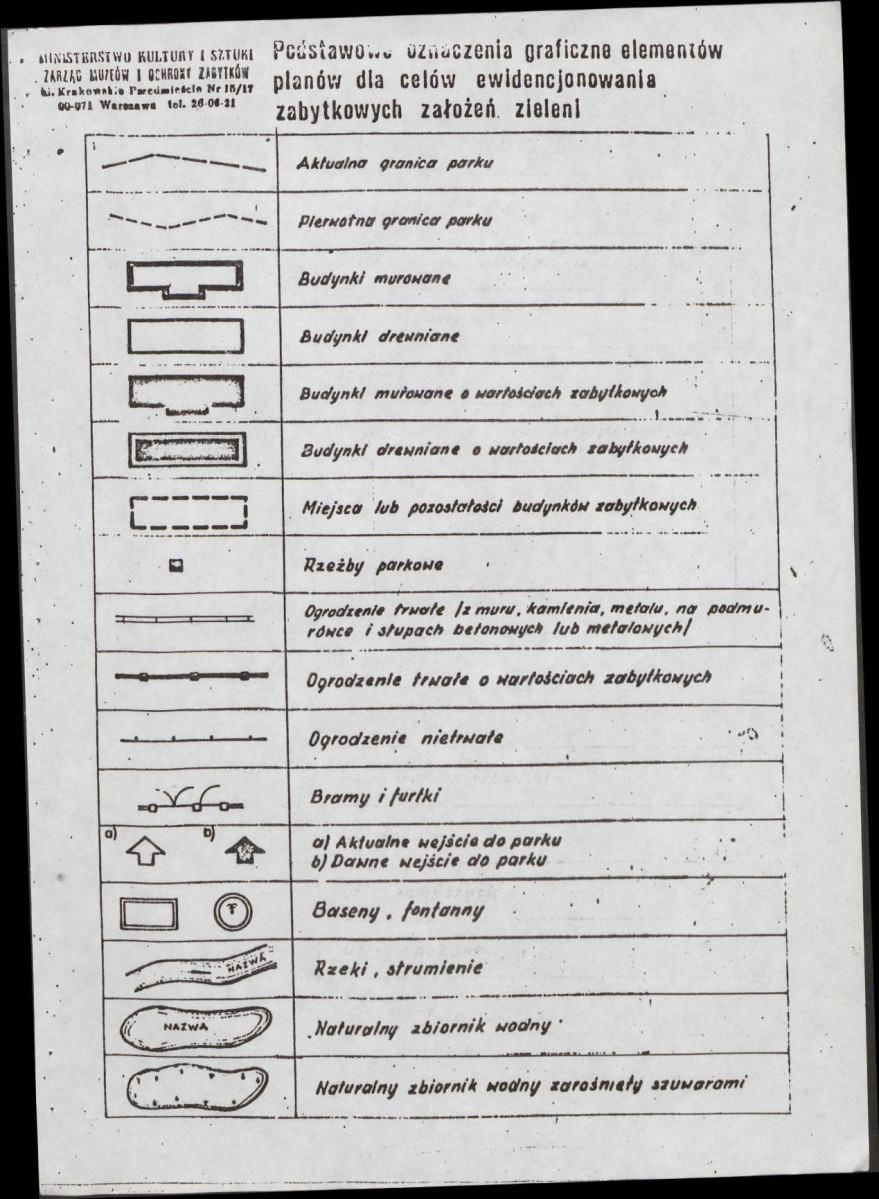 MINISTERSTWO KULTURY I SZTUKI
ZARZĄD MUZEÓW I OCHRONY ZABYTKÓW
ul. Krakowskie Przedmieście Nr 15/17
00-071 Warszawa tel. 26-06-21
Podstawowe oznaczenia graficzne elementów
planów dla celów ewidencjonowania
zabytkowych założeń zieleni
Aktualna granica parku
Pierwotna granica parku
Budynki murowane
Budynki drewniane
Budynki murowane o wartościach zabytkowych
Budynki drewniane o wartościach zabytkowych
Miejsca lub pozostałości budynków zabytkowych
Rzeźby parkowe
Ogrodzenie trwałe /z muru, kamienia, metalu, na podmu-
rówce i słupach betonowych lub metalowych/
Ogrodzenie trwałe o wartościach zabytkowych
Ogrodzenie nietrwałe
Bramy i furtki
a) b)
a) Aktualne wejście do parku
b) Dawne wejście do parku
F
Baseny, fontanny
NAZWA
Rzeki, strumienie
NAZWA
Naturalny zbiornik wodny
Naturalny zbiornik wodny zarośnięty szuwarami